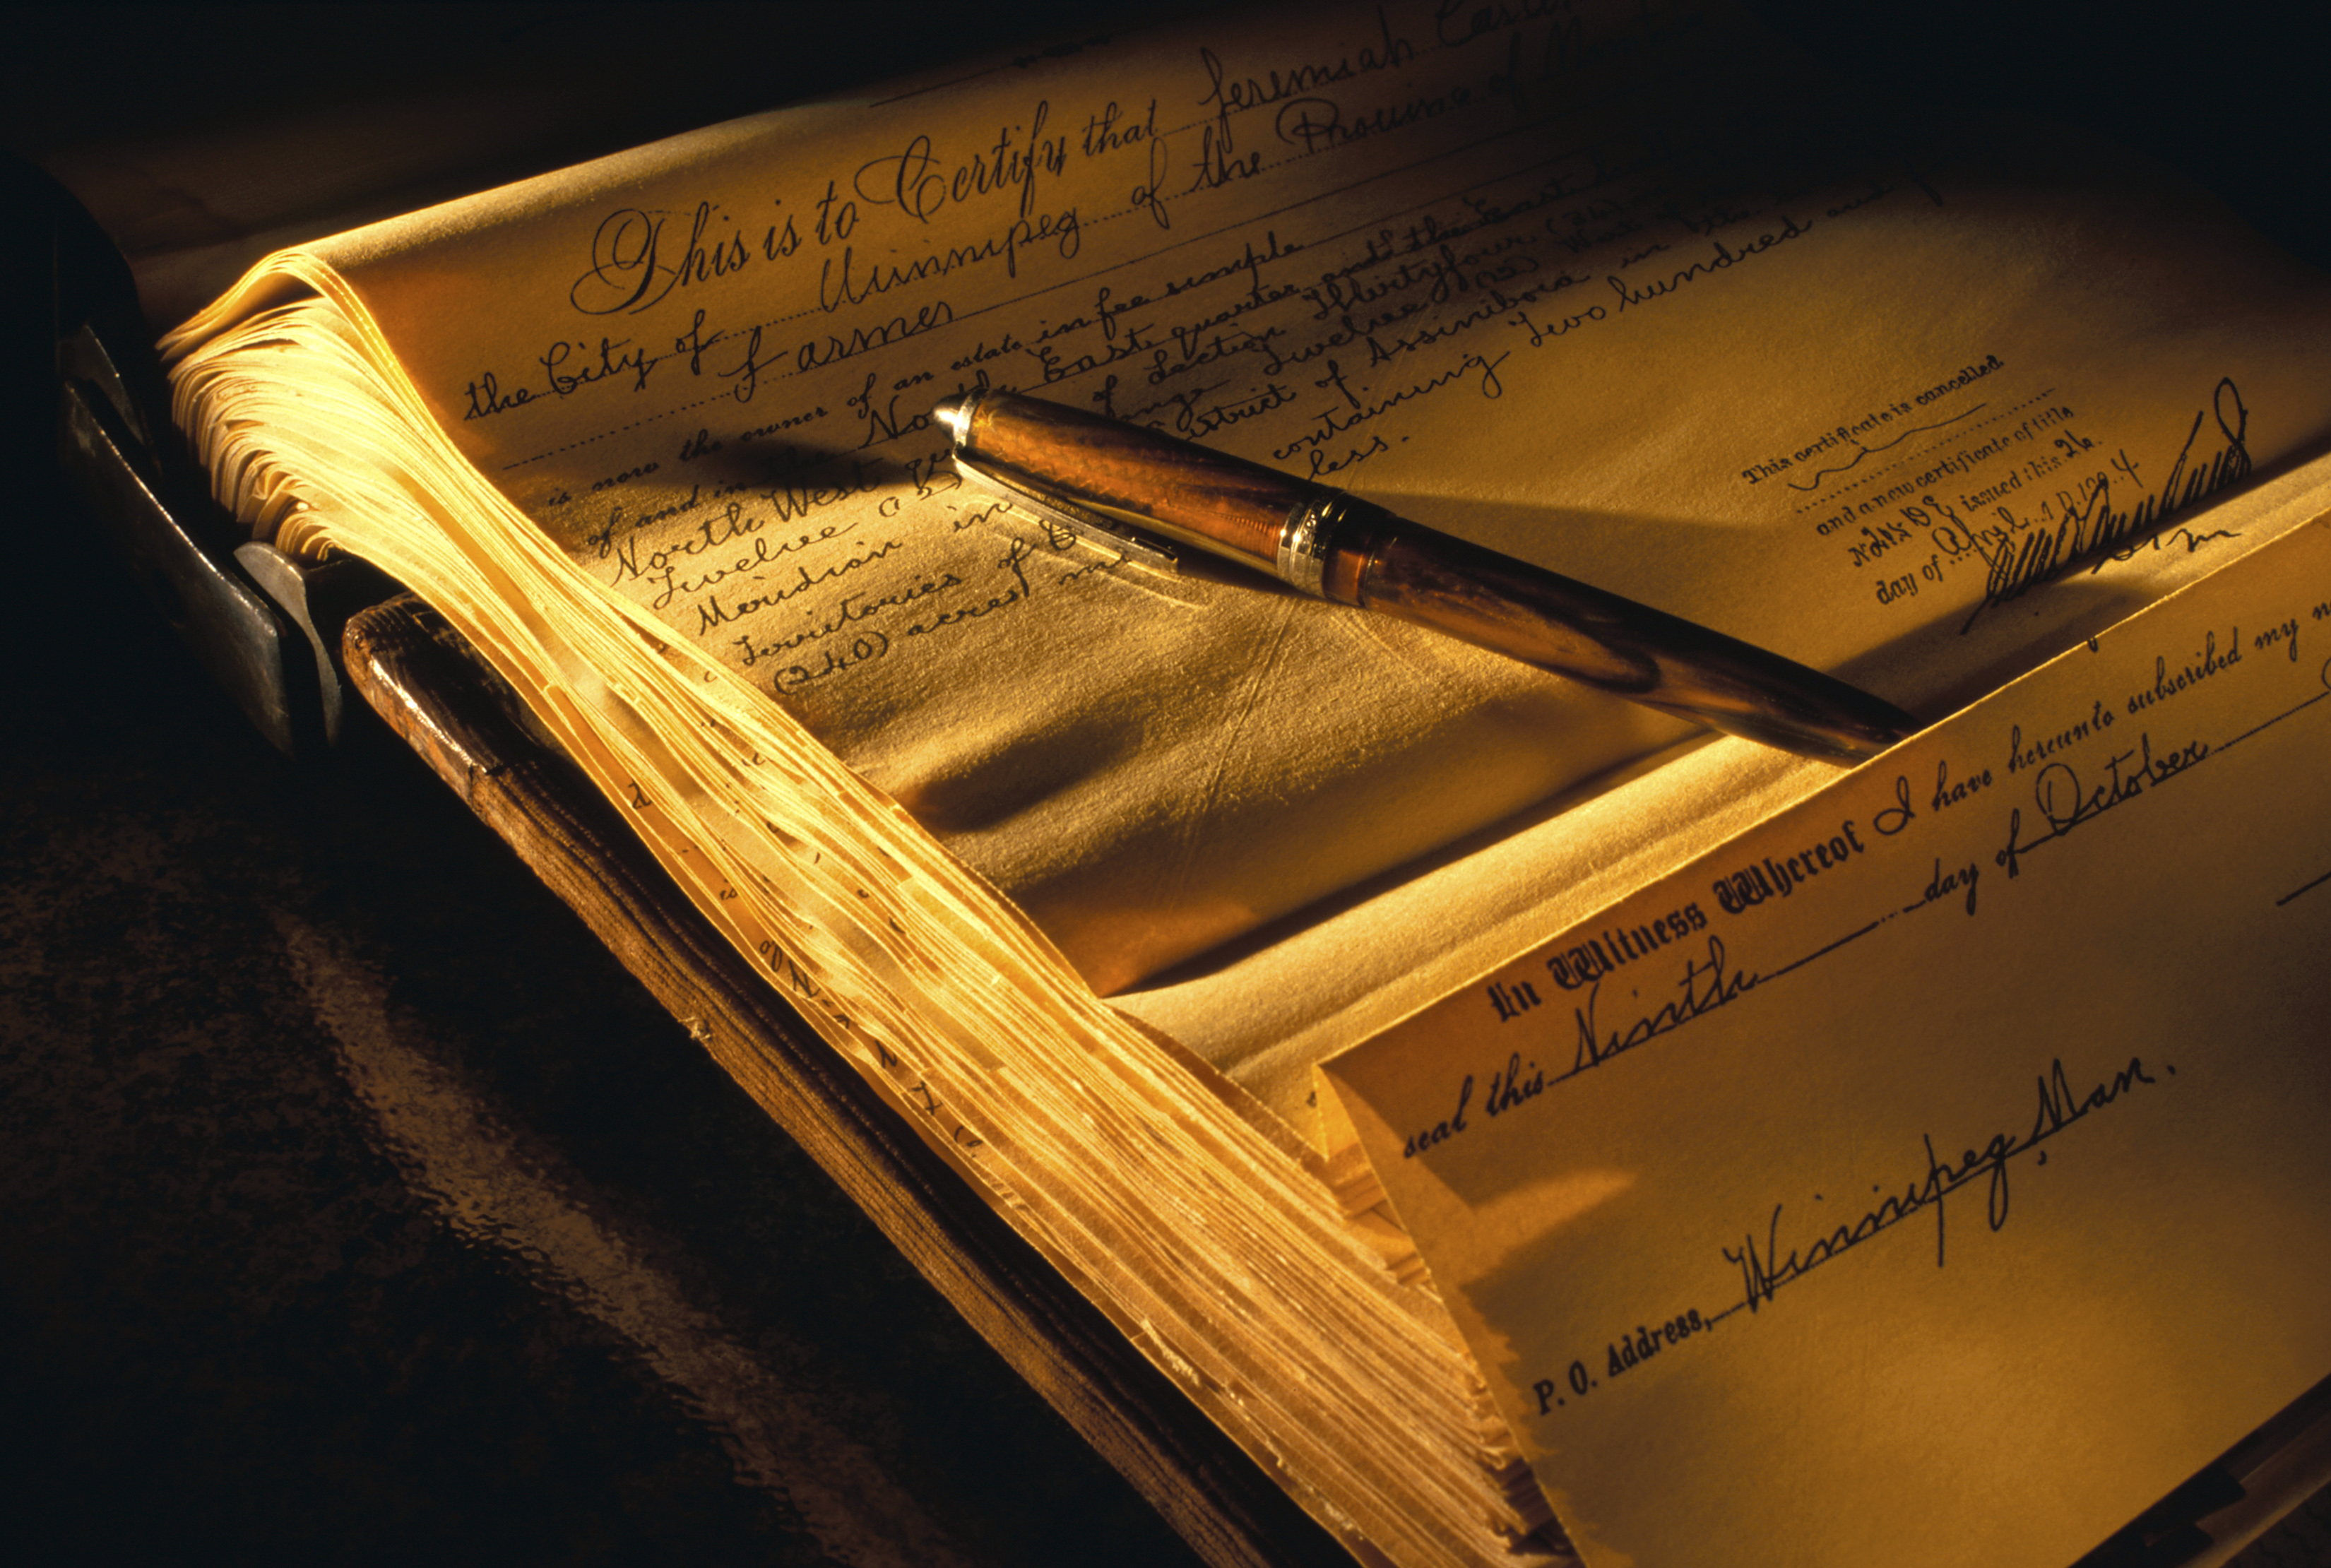 This is to Certify that Jeremiah
the City of Winnipeg of the Province of
Farmer
is now the owner of an estate in fee simple
of and in the North East quarter and the East
North West of Section Thirtyfour (34)
Twelve Range Twelve West
Meridian in District of Assiniboia in
Territories of containing Two hundred and
(240) acres less.
This certificate is cancelled
and a new certificate of title
issued this 26
day of April A.D. 190 4
In Witness Whereof I have hereunto subscribed my
seal this Ninth day of October
P. O. Address, Winnipeg, Man.